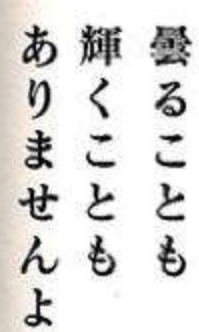 曇ることも
輝くことも
ありませんよ